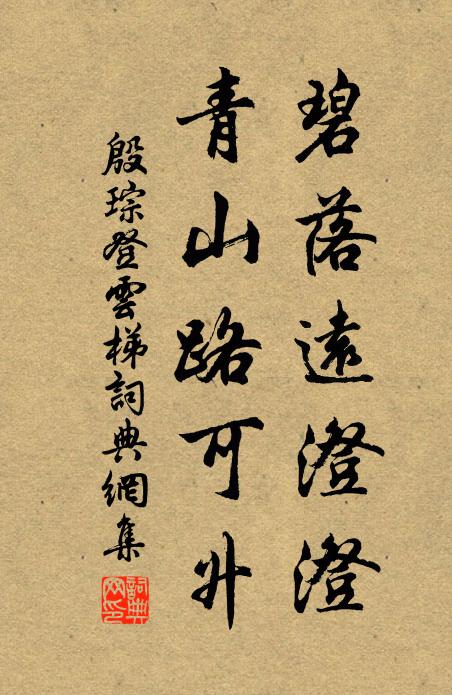 碧落遠澄澄
青山路可升
殷琮登雲梯詞典網集
詞典網印